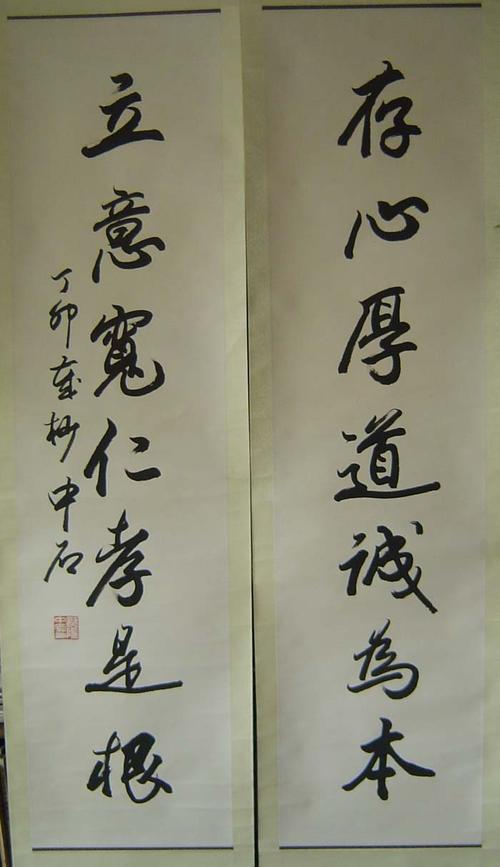 存心厚道誠為本
立意寬仁孝是根
丁卯歲抄中石